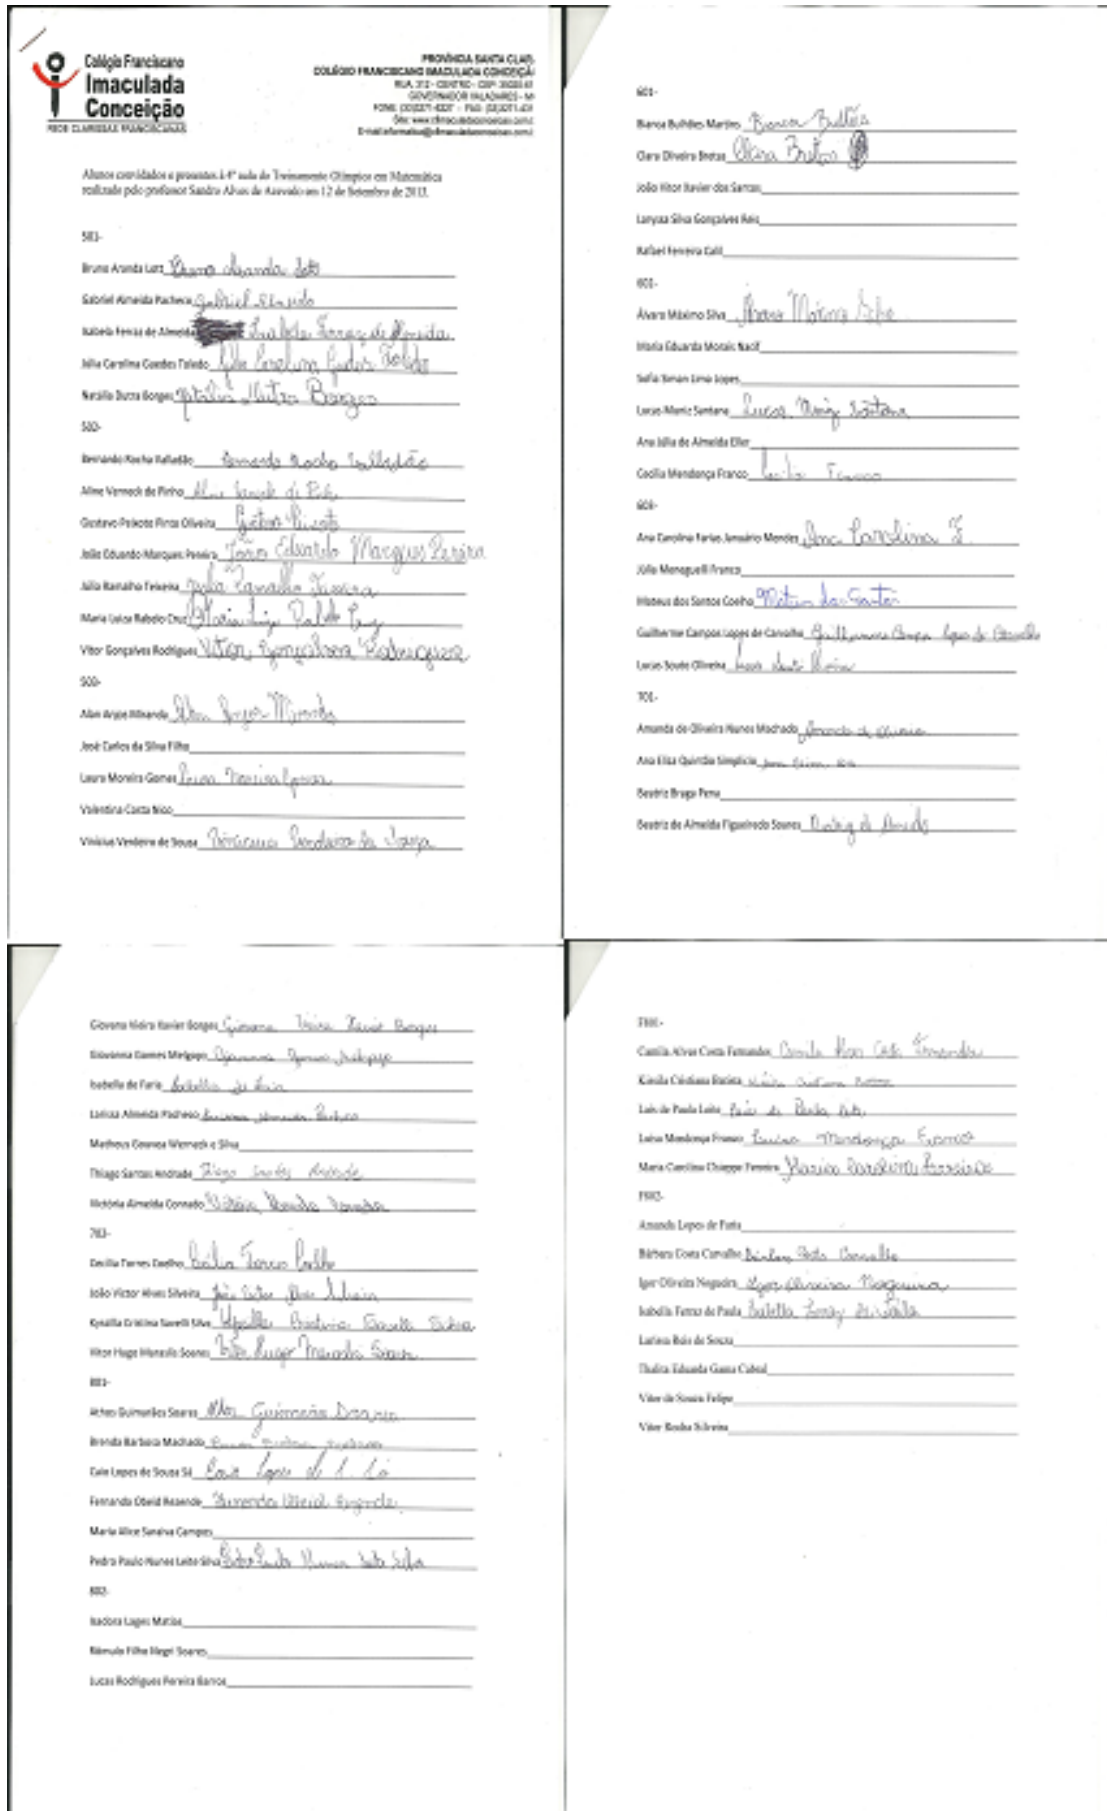 Colégio Franciscano
Imaculada
Conceição
REDE CLARISSAS FRANCISCANAS
PROVÍNCIA SANTA CLAR
COLÉGIO FRANCISCANO IMACULADA CONCEIÇÃ
RUA, 312 - CENTRO - CEP:
GOVERNADOR VALADARES - M
Alunos convidados e presentes à 4ª aula do Treinamento Olímpico em Matemática
realizado pelo professor Sandro Alves de Azevedo em 12 de Setembro de 2013.
501-
Bruno Aranda Lott
Gabriel Almeida Pacheco Gabriel Almeida
Isabela Ferraz de Almeida Isabela Ferraz de Almeida
Júlia Carolina Guedes Toledo Júlia Carolina Guedes Toledo
Natália Dutra Borges Natália Dutra Borges
502-
Bernardo Rocha Valladão Bernardo Rocha Valladão
Aline Verneck de Pinho
Gustavo Peixoto Pinto Oliveira Gustavo Peixoto
João Eduardo Marques Pereira João Eduardo Marques Pereira
Júlia Ramalho Teixeira Júlia Ramalho Teixeira
Maria Luiza Rabelo Cruz Maria Luiza Rabelo Cruz
Vitor Gonçalves Rodrigues Vitor Gonçalves Rodrigues
503-
Miranda
José Carlos da Silva Filho
Laura Moreira Gomes
Valentina Costa Nico
Vinícius Verdeiro de Sousa
601-
Bianca Bulhões Martins Bianca Bulhões
Clara Oliveira Bretas Clara Bretas
João Vitor Xavier dos Santos
Silva Gonçalves Reis
Rafael Ferreira Calil
602-
Álvaro Máximo Silva Álvaro Máximo Silva
Maria Eduarda Morais Nacif
Sofia Siman Lima Lopes
Lucas Muniz Santana Lucas Muniz Santana
Ana Júlia de Almeida Eller
Cecília Mendonça Franco Cecília Franco
603-
Ana Carolina Farias Januário Mendes Ana Carolina F.
Júlia Meneguelli Franco
Mateus dos Santos Coelho Mateus dos Santos
Guilherme Campos Lopes de Carvalho Guilherme Campos Lopes de Carvalho
Lucas Souto Oliveira Lucas Souto Oliveira
701-
Amanda de Oliveira Nunes Machado Amanda de Oliveira
Ana Elisa Quintão Simplício
Beatriz Braga Pena
Beatriz de Almeida Figueiredo Soares Beatriz de Almeida
Giovana Vieira Xavier Borges Giovana Vieira Xavier Borges
Giovanna Gomes Melgaço Giovanna Gomes Melgaço
Isabella de Faria Isabella de Faria
Larissa Almeida Pacheco Larissa Almeida Pacheco
Matheus Gouvea Werneck e Silva
Thiago Santos Andrade Thiago Santos Andrade
Victória Almeida Conrado
702-
Cecília Torres Coelho Cecília Torres Coelho
João Victor Alves Silveira João Victor Alves Silveira
Kysalla Cristina Savelli Silva
Vitor Hugo Soares
801-
Athos Guimarães Soares Athos Guimarães Soares
Brenda Barbosa Machado
Caio Lopes de Sousa Sá Caio Lopes de S. Sá
Fernanda Obeid Resende Fernanda Obeid Resende
Maria Alice Saraiva Campos
Pedro Paulo Nunes Leite Silva Pedro Paulo Nunes Leite Silva
802-
Isadora Lages Matias
Rômulo Filho Negri Soares
Lucas Rodrigues Pereira Barros
F801-
Camila Alves Costa Fernandes Camila Alves Costa Fernandes
Késila Cristiana Batista
Laís de Paula Leite Laís de Paula Leite
Luísa Mendonça Franco Luísa Mendonça Franco
Maria Carolina Chiappe Ferreira Maria Carolina Ferreira
F802-
Amanda Lopes de Faria
Bárbara Costa Carvalho Bárbara Costa Carvalho
Igor Oliveira Nogueira Igor Oliveira Nogueira
Isabella Ferraz de Paula Isabella Ferraz de Paula
Larissa Reis de Souza
Thalita Eduarda Gama Cabral
Vitor de Souza Felipe
Vitor Rocha Silveira